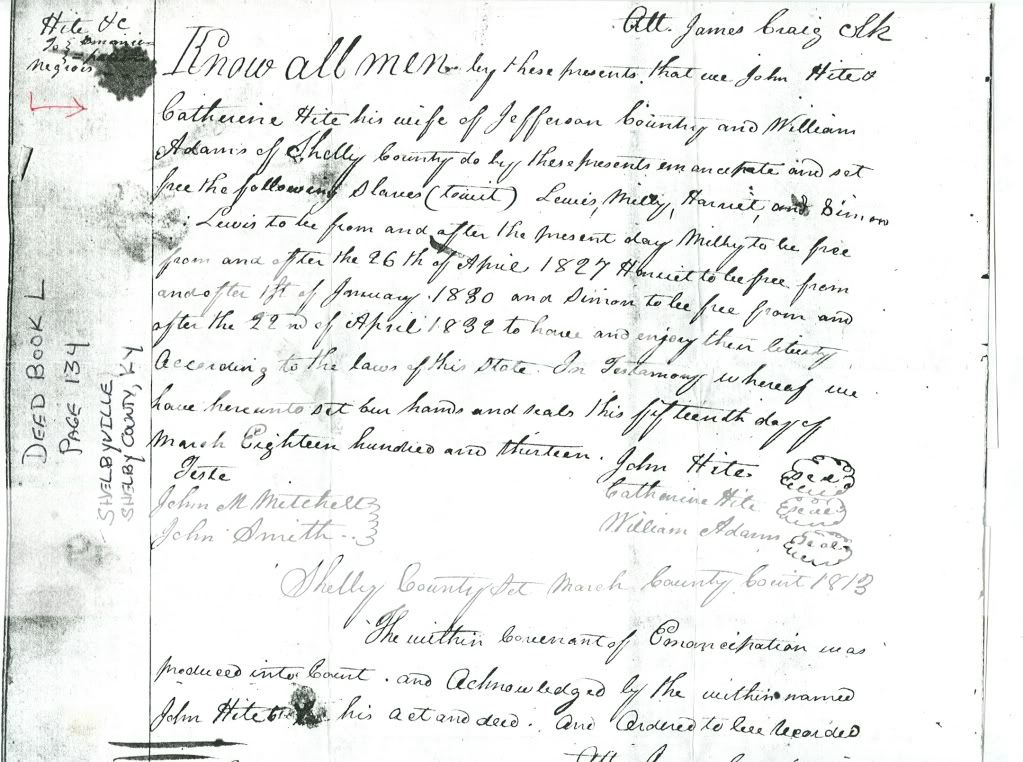 Att. James Craig Clk
Hite &c
To } Emancipation
Negrois
Know all men by these presents, that we John Hite &
Catherine Hite his wife of Jefferson Country and William
Adams of Shelby County do by these presents emancipate and set
free the following slaves (towit) Lewis, Milly, Harriet, and Simon
Lewis to be from and after the present day Milky to be free
from and after the 26th of April 1827 Harriet to be free from
and after 1st of January 1830 and Simon to be free from and
after the 22nd of April 1832 to have and enjoy their liberty
According to the laws of this State. In Testamony whereof we
have hereunto set our hands and seals this fifteenth day of
March Eighteen hundred and thirteen. John Hite Seal
Teste
Catherine Hite Seal
John M Mitchell
William Adams Seal
John Smith
Shelby County Sct March County Court 1813
The within Covenant of Emancipation was
produced into Court and Acknowledged by the within named
John Hite to be his act and deed. And Ordered to be recorded
Att
DEED BOOK L
PAGE 134
SHELBYVILLE
SHELBY COUNTY, KY